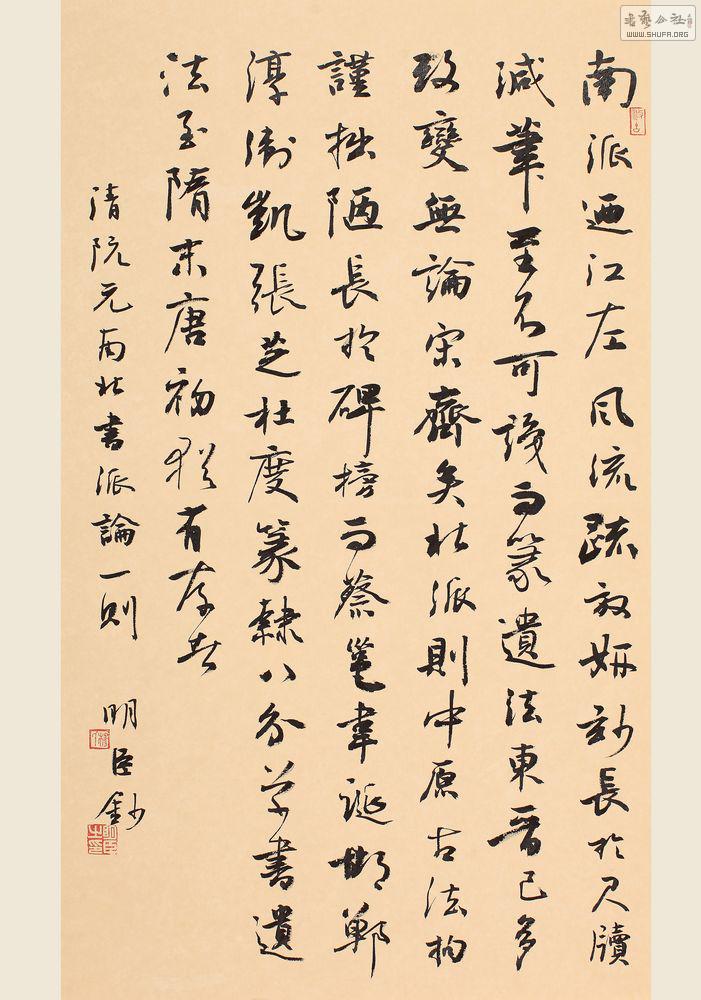 南派迺江左風流疏放妍妙長於尺牘
減筆至不可識而篆遺法東晉已多
改變無論宋齊矣北派則中原古法拘
謹拙陋長於碑榜而蔡邕韋誕邯鄲
淳衛凱張芝杜度篆隸八分草書遺
法至隋末唐初猶有存者
清阮元南北書派論一則
明臣鈔
書藝公社
WWW.SHUFA.ORG